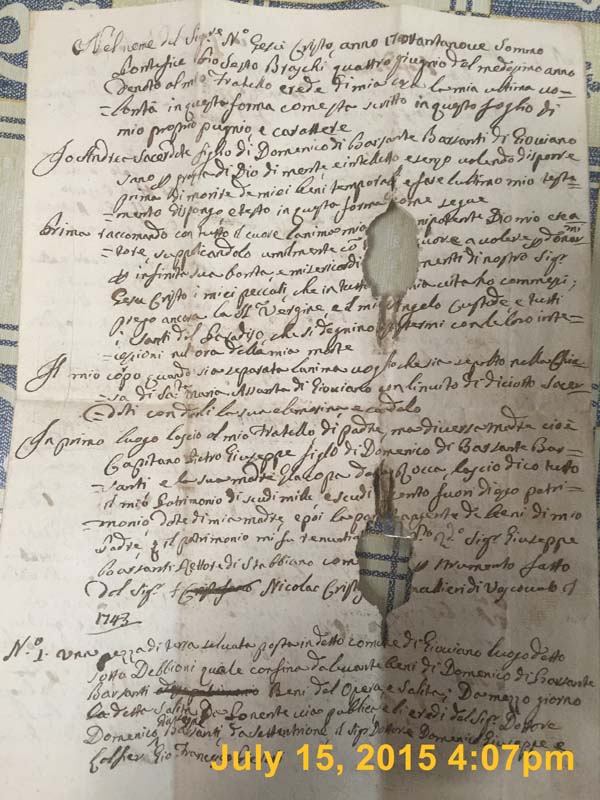 Nel nome del Sig.re N.º Gesù Cristo, anno 17 Sommo
Pontefice Pio Sesto Braschi quattro giugno del medesimo anno
Dono al mio Fratello erede di mia la mia ultima vo=
=lontà in questa forma come sta scritto in questo foglio di
mio proprio pugnio e carattere
Io Andrea Sacerdote figlio di Domenico di Barsante Barsanti di Gioviano
sano grazia di Dio di mente e intelletto e senso volendo disporre
prima di morire de miei beni temporali e fare l'ultimo mio testa=
=mento dispongo e testo in questa forma come segue
Prima raccomando con tutto il cuore l'anima mia nipotente Dio mio crea=
=tore, supplicandolo umilmente cuore a volere
infinita sua bontà e misericordi menti di nostro Sig.
Gesu Cristo i miei peccati, che in tutt mia vita ho commessi;
priego ancora la SS. Vergine, e il mio Angelo Custode e tutti
i Santi del Paradiso, che si degnino stermi con le loro inter=
=cessioni nell'ora della mia morte
Il mio corpo quando sia separata l'anima voglio che sia sepolto nella Chie=
sa di Sa.ta Maria Assunta di Gioviano con l'invito di diciotto Sacer=
=doti con darli la sua elemosina e candela
In primo luogo lascio al mio Fratello di padre, ma diversa madre cioè
Capitano Pietro Giuseppe figlio di Domenico di Barsante Bar=
=santi e la sua madre Jacopa da Rocca, lascio dico tutto
il mio Patrimonio di scudi mille e scudi cento fuori di esso patri=
=monio, dote di mia madre, e poi la par gente de beni di mio
Padre, il patrimonio mi fu renunti Sig.r Giuseppe
Barsanti Rettore di Stabbiano com strumento fatto
dal Sig.r Nicolao Cristo allieri di Vescovato il
1743
N.º 1. Una pezza di terra selvata posta in detto comune di Gioviano luogo detto
sotto Debbioni quale confina da levante beni di Domenico di Barsante
Barsanti Beni del Opera e Salita; Da mezzo giorno
la detta Salita; Da Ponente via publica e li eredi del Sig.r Dottore
Domenico Barsanti, da settentrione, il Sig.r Dottore Domenico Giuseppe e
Gio Francesco
July 15, 2015 4:07pm